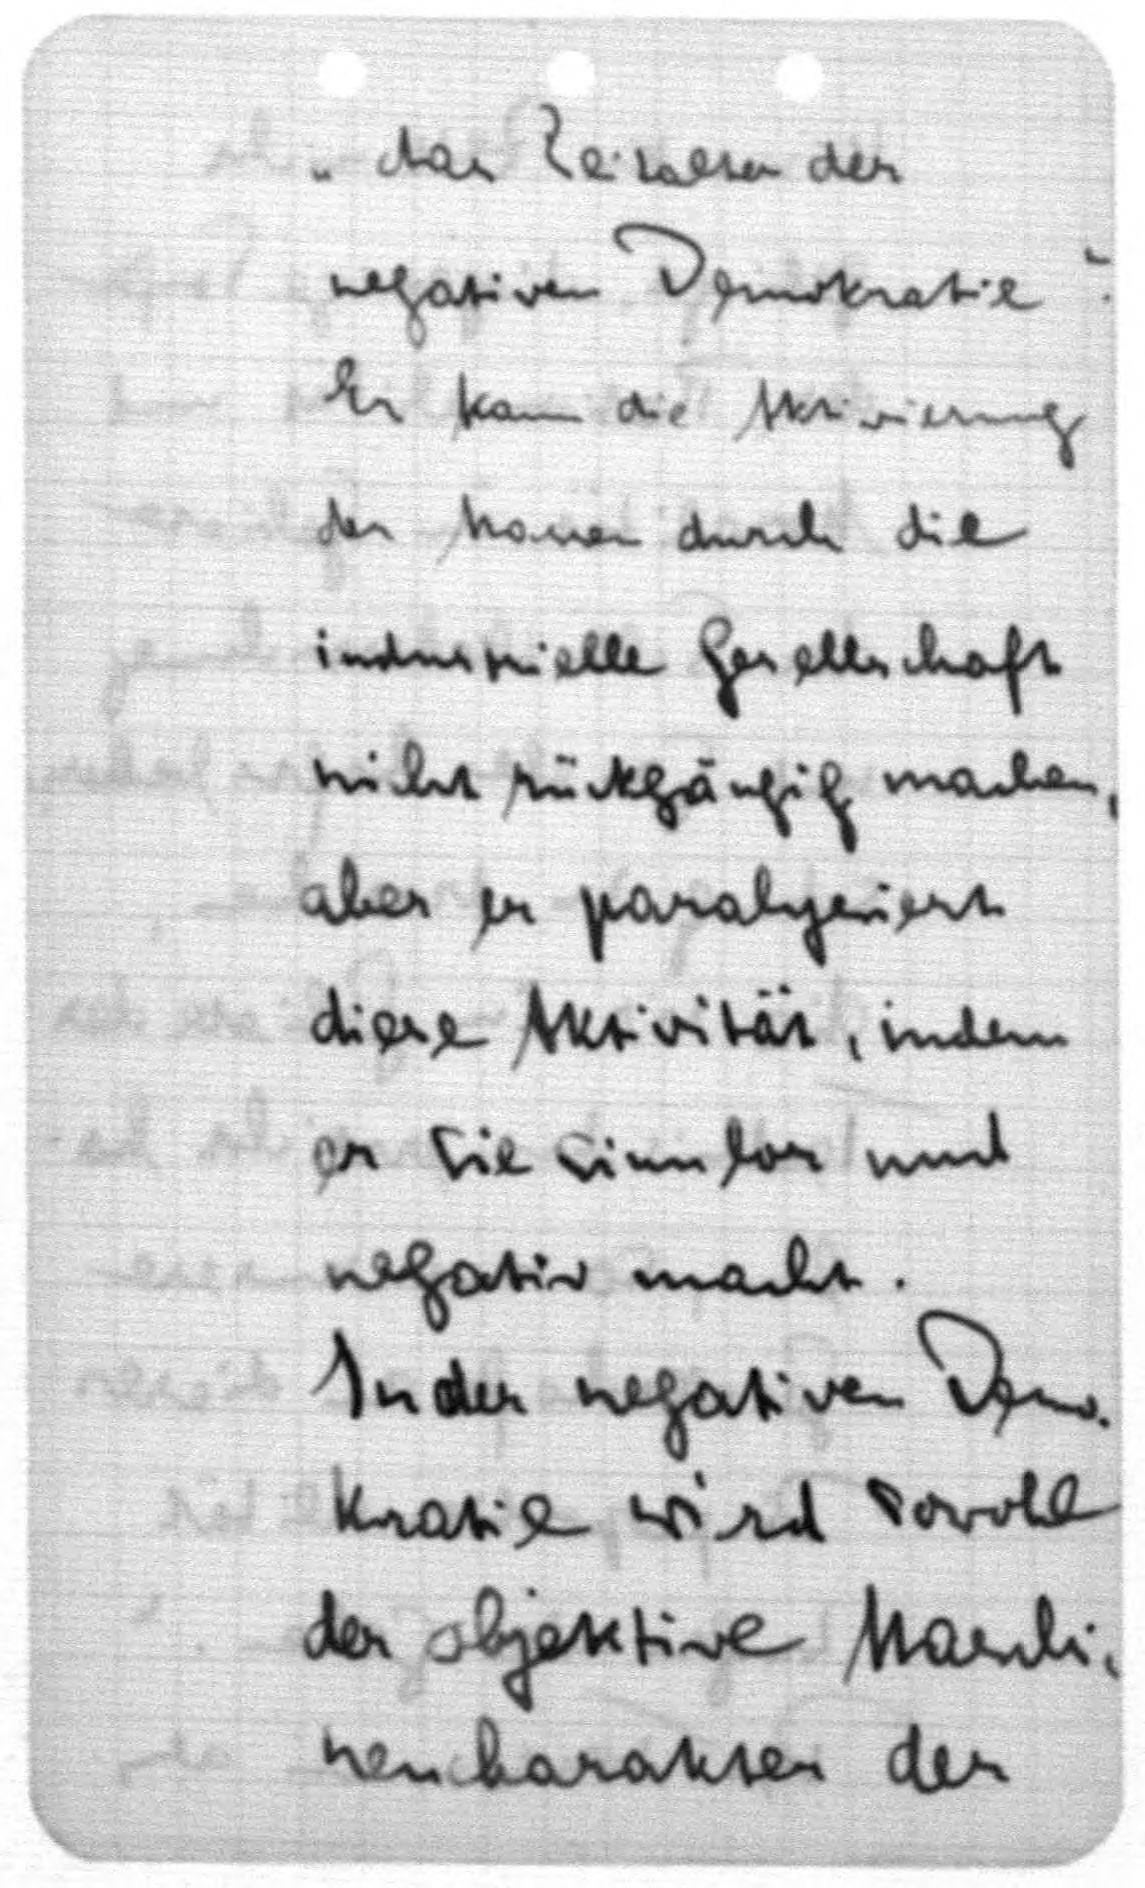 „das Zeitalter der
negativen Demokratie".
Er kann die Aktivierung
der Massen durch die
industrielle Gesellschaft
nicht rückgängig machen,
aber er paralysiert
diese Aktivität, indem
er sie sinnlos und
negativ macht.
In der negativen Demo-
kratie wird sowohl
der objektive Maschi-
nencharakter der